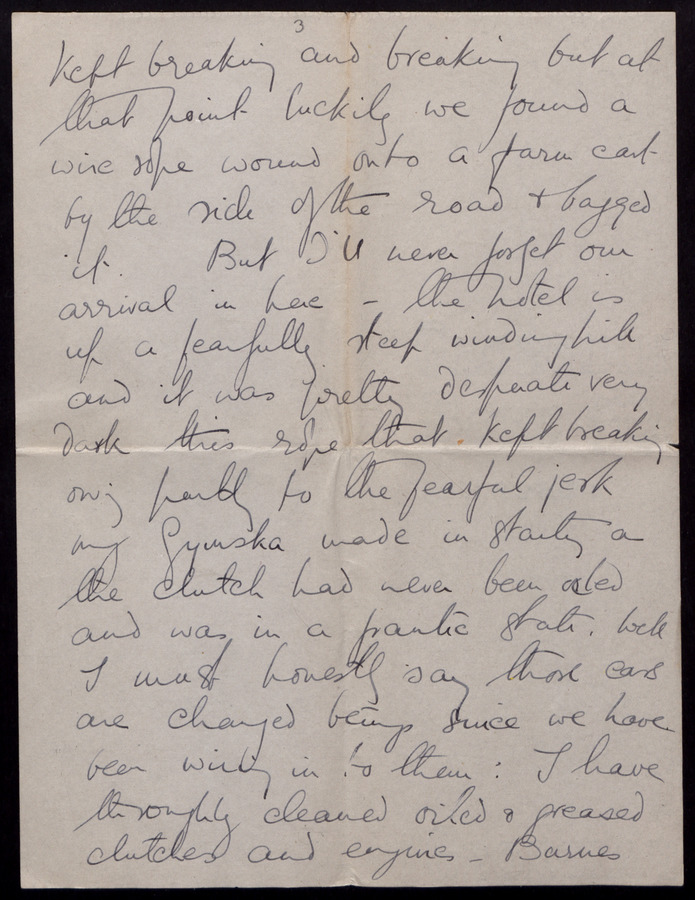 3
kept breaking and breaking but at
that point luckily we found a
wire rope wound onto a farm cart
by the side of the road & bagged
it. But I'll never forget our
arrival in here – the hotel is
up a fearfully steep winding hill
and it was pretty desperate very
dark this rope that kept breaking
owing partly to the fearful jerk
my Gymska made in starting a
the clutch had never been oiled
and was in a frantic state. Well
I must honestly say those cars
are changed beings since we have
been in to them : I have
throughly cleaned oiled & greased
clutches and engines – Barnes